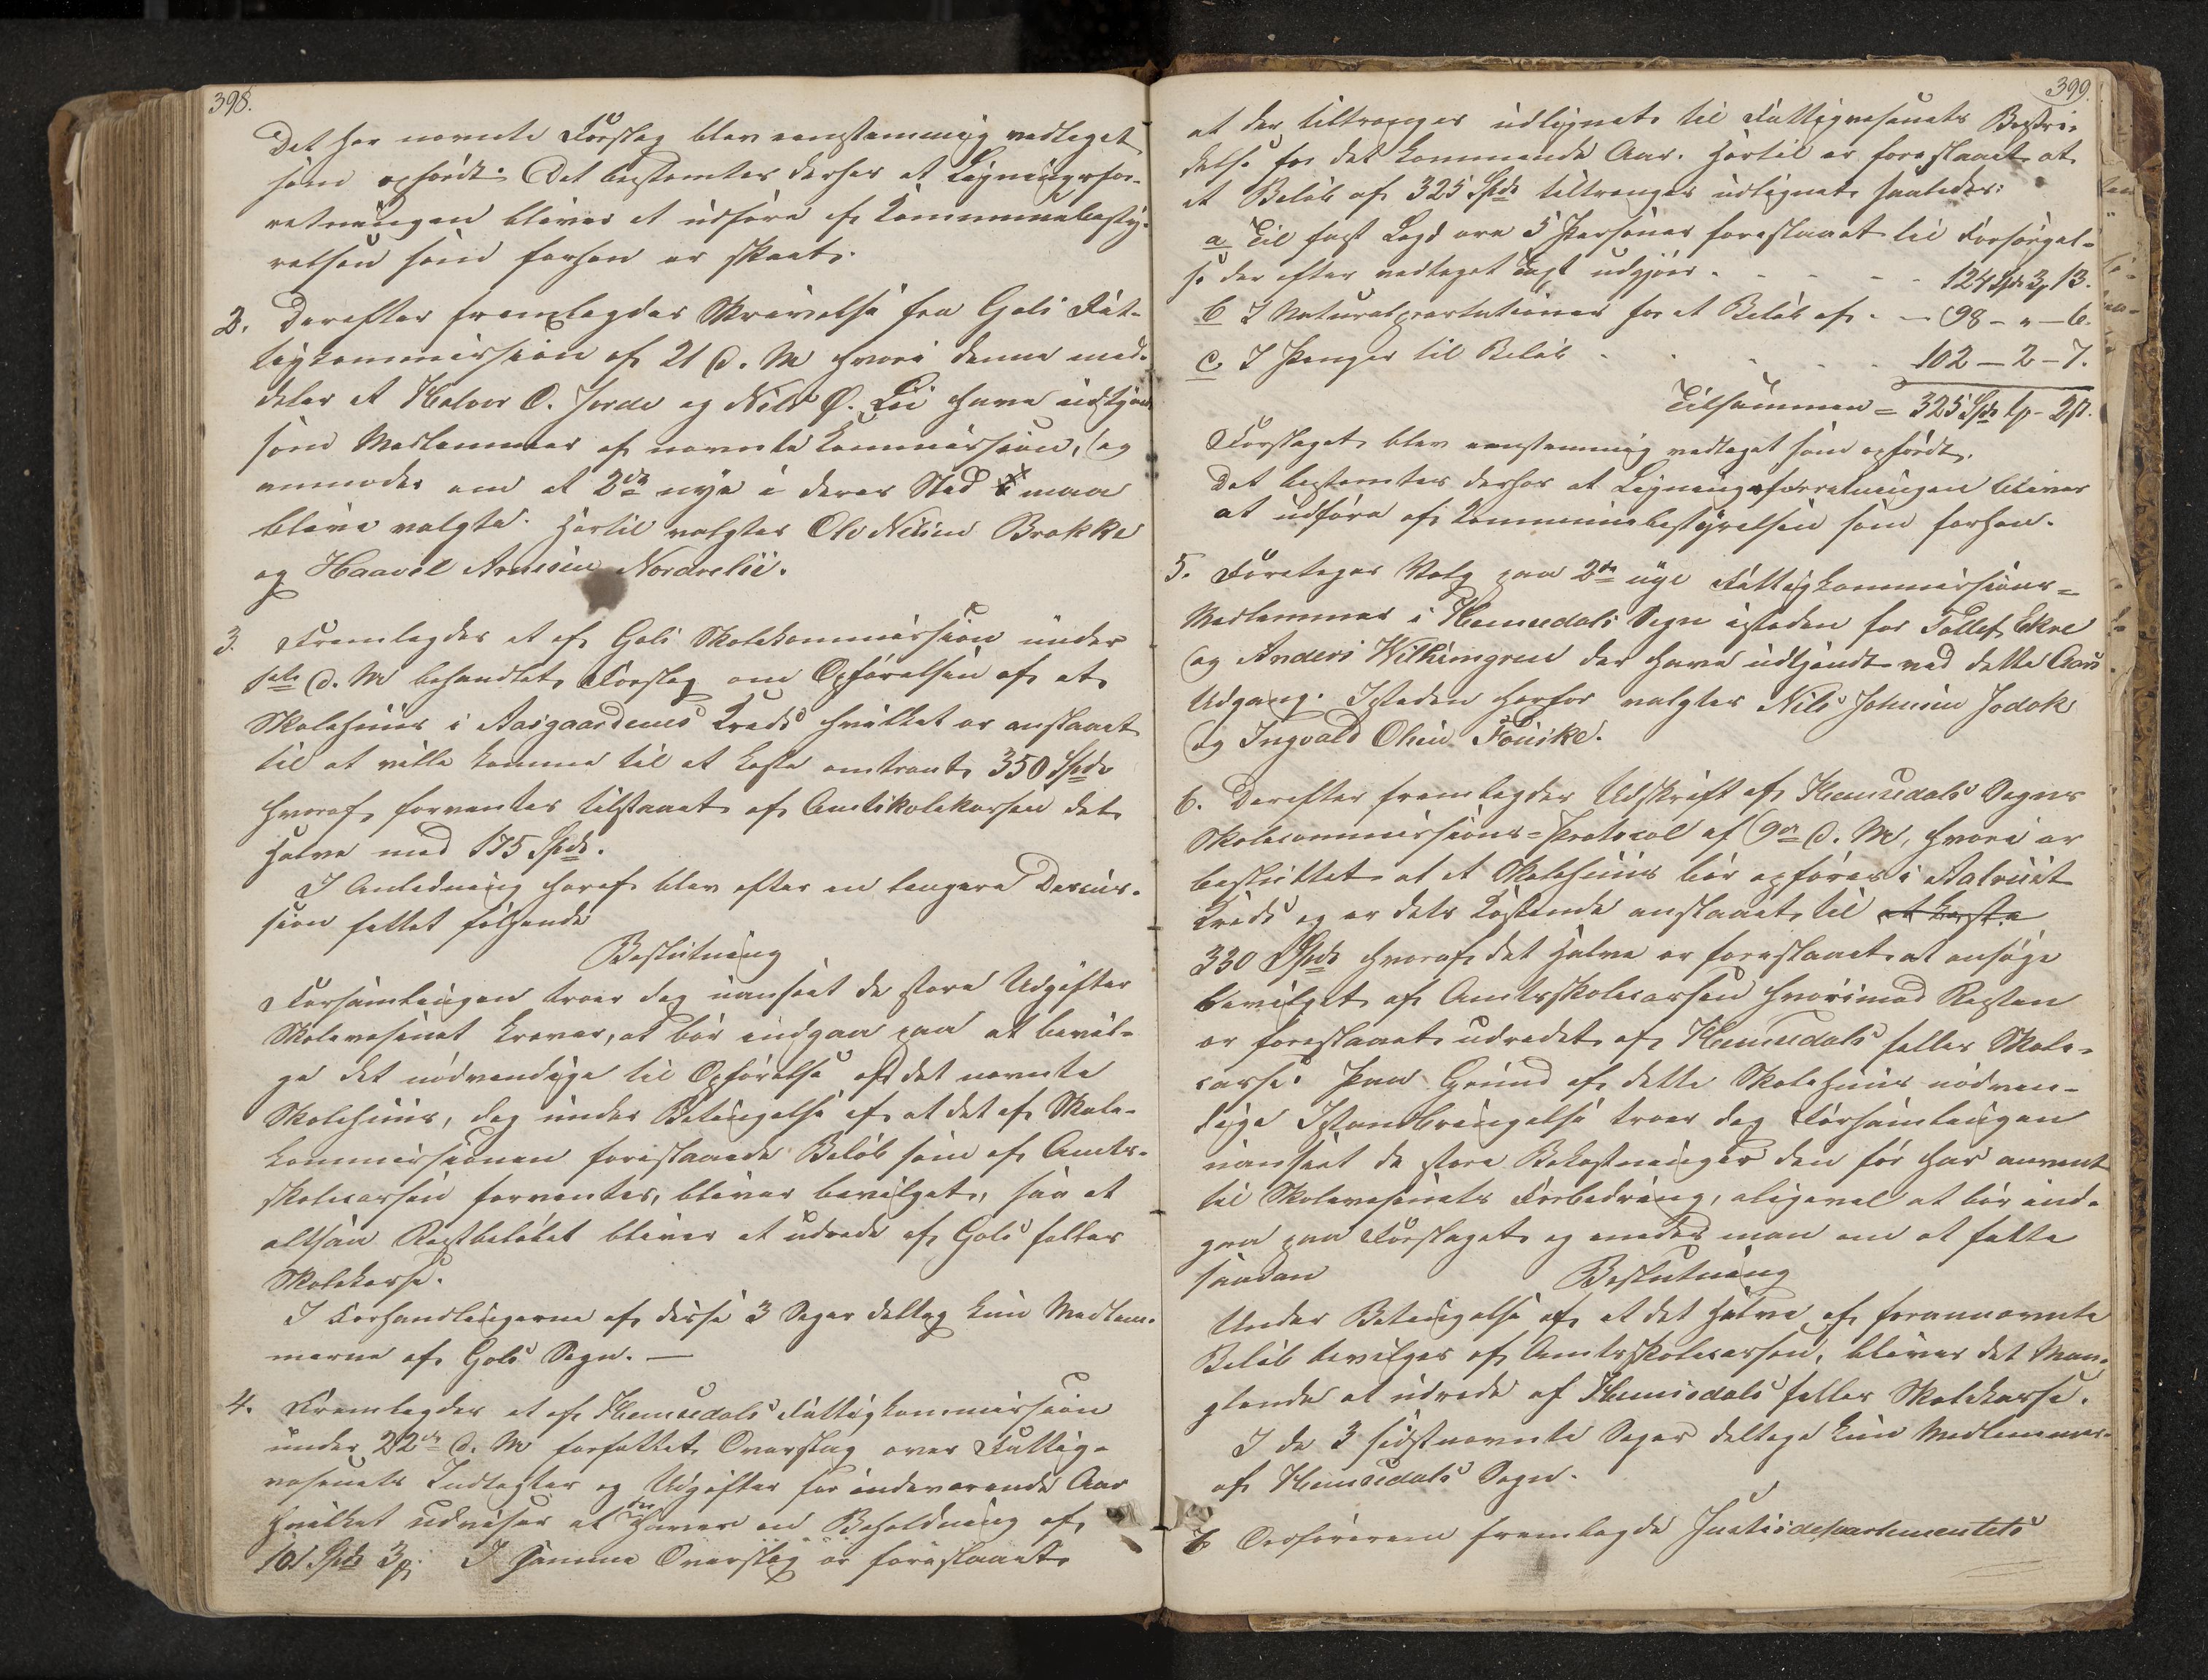 398.
Det her nævnte Forslag blev eenstemmig vedtaget
som opfördt. Det bestemtes derhos at Ligningsfor-
retningen bliver at udföre af Kommunebesty-
relsen som forhen er skeet.
2. Derefter fremlagdes Skrivelse fra Gols Fat-
tigkommission af 21 d. M hvori denne med-
deler at Halvor O. Jorde og Nils Ø. Lii have udtjent
som Medlemmer af nævnte Kommission, og
anmodes om at 2de nye i deres Sted maa
blive valgte. Hertil valgtes Ole Nilsen Brekke
og Haavel Arnesen Nordrelii.
3. Fremlagdes et af Gols Skolekommission under
d. M behandlet Forslag om Opförelsen af et
Skolehuus i Aasgaardenes Kreds hvilket er anslaaet
til at ville komme til at koste omtrent 350 Spd
hvoraf forventes tilstaaet af Amtsskolekassen det
Halve med 175 Spd.
I Anledning heraf blev efter en længere Discus-
sion fattet fölgende
Beslutning
Forsamlingen troer dog uanseet de store Udgifter
Skolevæsenet kræver, at bör indgaa paa at bevil-
ge det nödvendige til Opförelse af det nævnte
Skolehuus, dog under Betingelse af at det af Skole-
kommissionen foreslaaede Belöb som af Amts-
skolecassen forventes, bliver bevilget, saa at
altsaa Restbelöbet bliver at udrede af Gols fælles
Skolekasse.
I Forhandlingerne af disse 3 Sager deltog kun Medlem-
merne af Gols Sogn. —
4. Fremlagdes et af Hemsedals Fattigkommission
under 22de d. M forfattet Overslag over Fattig-
væsenets Indtægter og Udgifter for indeværende Aar
hvilket udviser at der haves en Beholdning af
101 Spd 3 . I samme Overslag er foreslaaet
399.
at der tiltrænges udlignet til Fattigvæsenets Bestri-
delse for det kommende Aar. Hertil er foreslaaet at
et Belöb af 325 Spd tiltrænges udlignet saaledes:
a Til fast Lægd ere 5 Personer foreslaaet til Forsörgel-
se der efter vedtaget Taxt udgjör - - - - 124 Spd 3 13.
b I Naturalpræstationer for et Belöb af - — 98 - " - 6.
c. I Penger til Belöb - - - - 102 — 2 - 7.
Tilsammen = 325 Spd 1 - 2 .
Forslaget blev eenstemmig vedtaget som opfördt.
Det bestemtes derhos at Ligningsforretningen bliver
at udföre af Kommunebestyrelsen som forhen.
5. Foretages Valg paa 2de nye Fattigkommissions-
Medlemmer i Hemsedals Sogn isteden for Tollef Ekre
og Anders Wilhelmgren der have udtjendt ved dette Aars
Udgang. Isteden herfor valgtes Nils Johnsen Jodok
og Ingvald Olsen Fauske.
6. Derefter fremlagdes Udskrift af Hemsedals Sogns
Skolecommissions-Protocol af 9de d. M, hvori er
besluttet at et Skolehuus bör opföres i Aalrust
Kreds og er dets Kostende anslaaet til at koste
330 Spd hvoraf det Halve er foreslaaet at ansöge
bevilget af Amtsskolecassen hvorimod Resten
er foreslaaet udredet af Hemsedals fælles Skole-
casse. Paa Grund af dette Skolehuus nödven-
dige Istandbringelse troer dog Forsamlingen
uanseet de store Bekostninger den för har anvendt
til Skolevæsenets Forbedring, aligevel at bör ind-
gaa paa Forslaget og enedes man om at fatte
saadan Beslutning
Under Betingelse af at det Halve af forannævnte
Belöb bevilges af Amtsskolecassen, bliver det Man-
glende at udrede af Hemsedals fælles Skolekasse.
I de 3 sidstnævnte Sager deltoge kun Medlemmer
af Hemsedals Sogn.
6 Ordföreren fremlagde Justisdepartementets